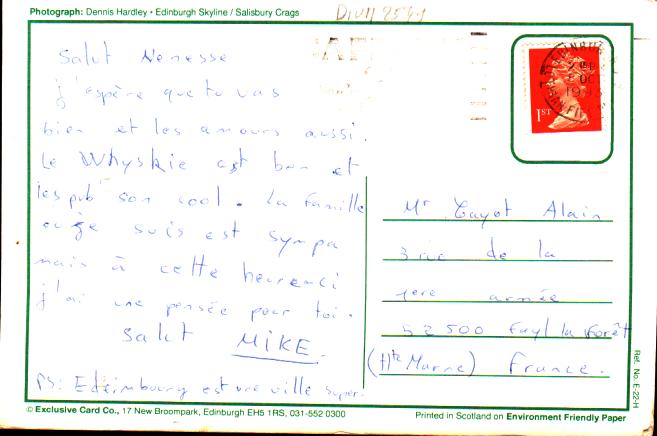 Photograph: Dennis Hardley • Edinburgh Skyline / Salisbury Crags
Salut Nenesse
j'espère que tu vas
bien et les amours aussi.
Le Whyskie est bon et
les pub son cool. La famille
ou je suis est sympa
mais à cette heure ci
j'ai une pensée pour toi.
Salut MIKE.
PS: Edeimbourg est une ville super.
1ST
Mr Cayot Alain
3 rue de la
1ere armée
52500 Fayl la Forêt
(Hte Marne) France.
Ref. No. E-22-H
© Exclusive Card Co., 17 New Broompark, Edinburgh EH5 1RS, 031-552 0300
Printed in Scotland on Environment Friendly Paper